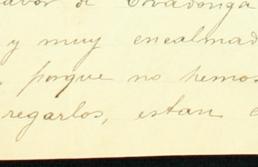 de Covadonga
y muy encalmad
, porque no hemos
regarlos, estan